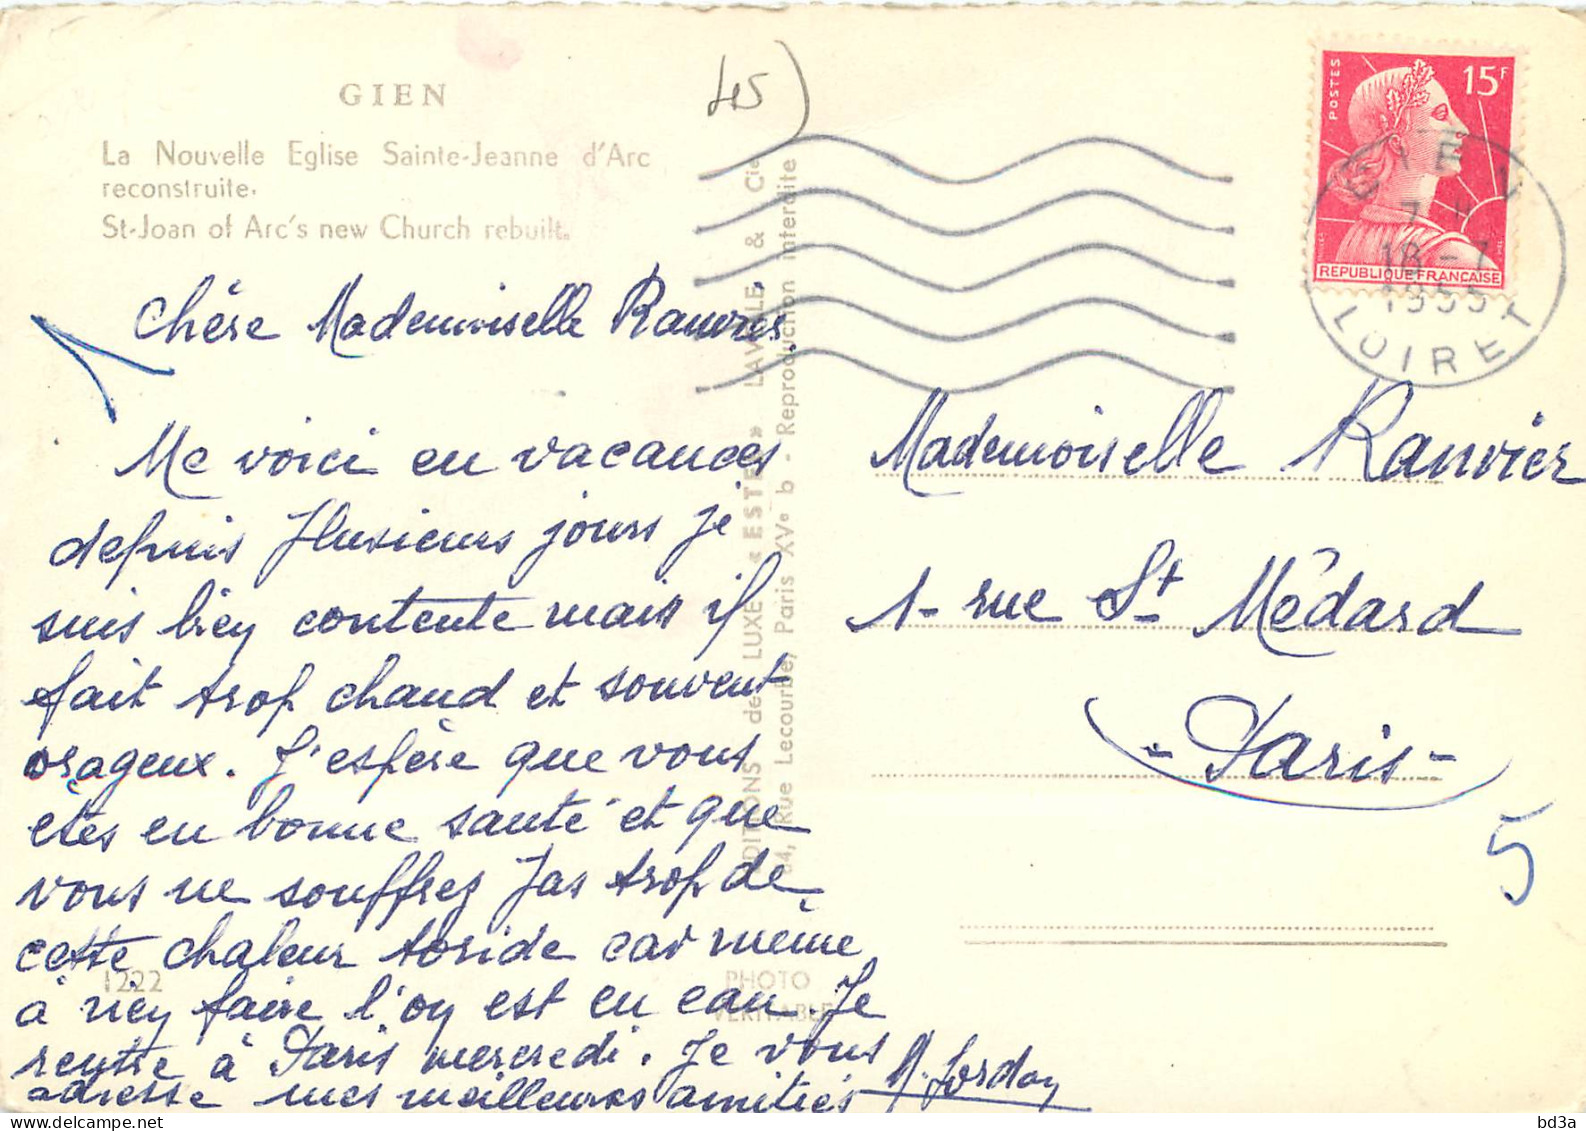 GIEN
La Nouvelle Eglise Sainte-Jeanne d'Arc
reconstruite.
St-Joan of Arc's new Church rebuilt.
45
Chère Mademoiselle Ranvier,
Me voici en vacances
depuis plusieurs jours je
suis bien contente mais il
fait trop chaud et souvent
orageux. J'espère que vous
etes en bonne santé et que
vous ne souffrez pas trop de
cette chaleur toride car même
à rien faire l'on est en eau. Je
rentre à Paris mercredi. Je vous
adresse mes meilleures amitiés
M. Jordan
1222
EDITIONS de LUXE «ESTEL» LAVELLE & Cie
84, Rue Lecourbe, Paris XVe b - Reproduction interdite
PHOTO
VERITABLE
POSTES
15F
REPUBLIQUE FRANÇAISE
GIEN
18 - 7
1955
LOIRET
Mademoiselle Ranvier
1- rue St Médard
- Paris -
5
bd3a